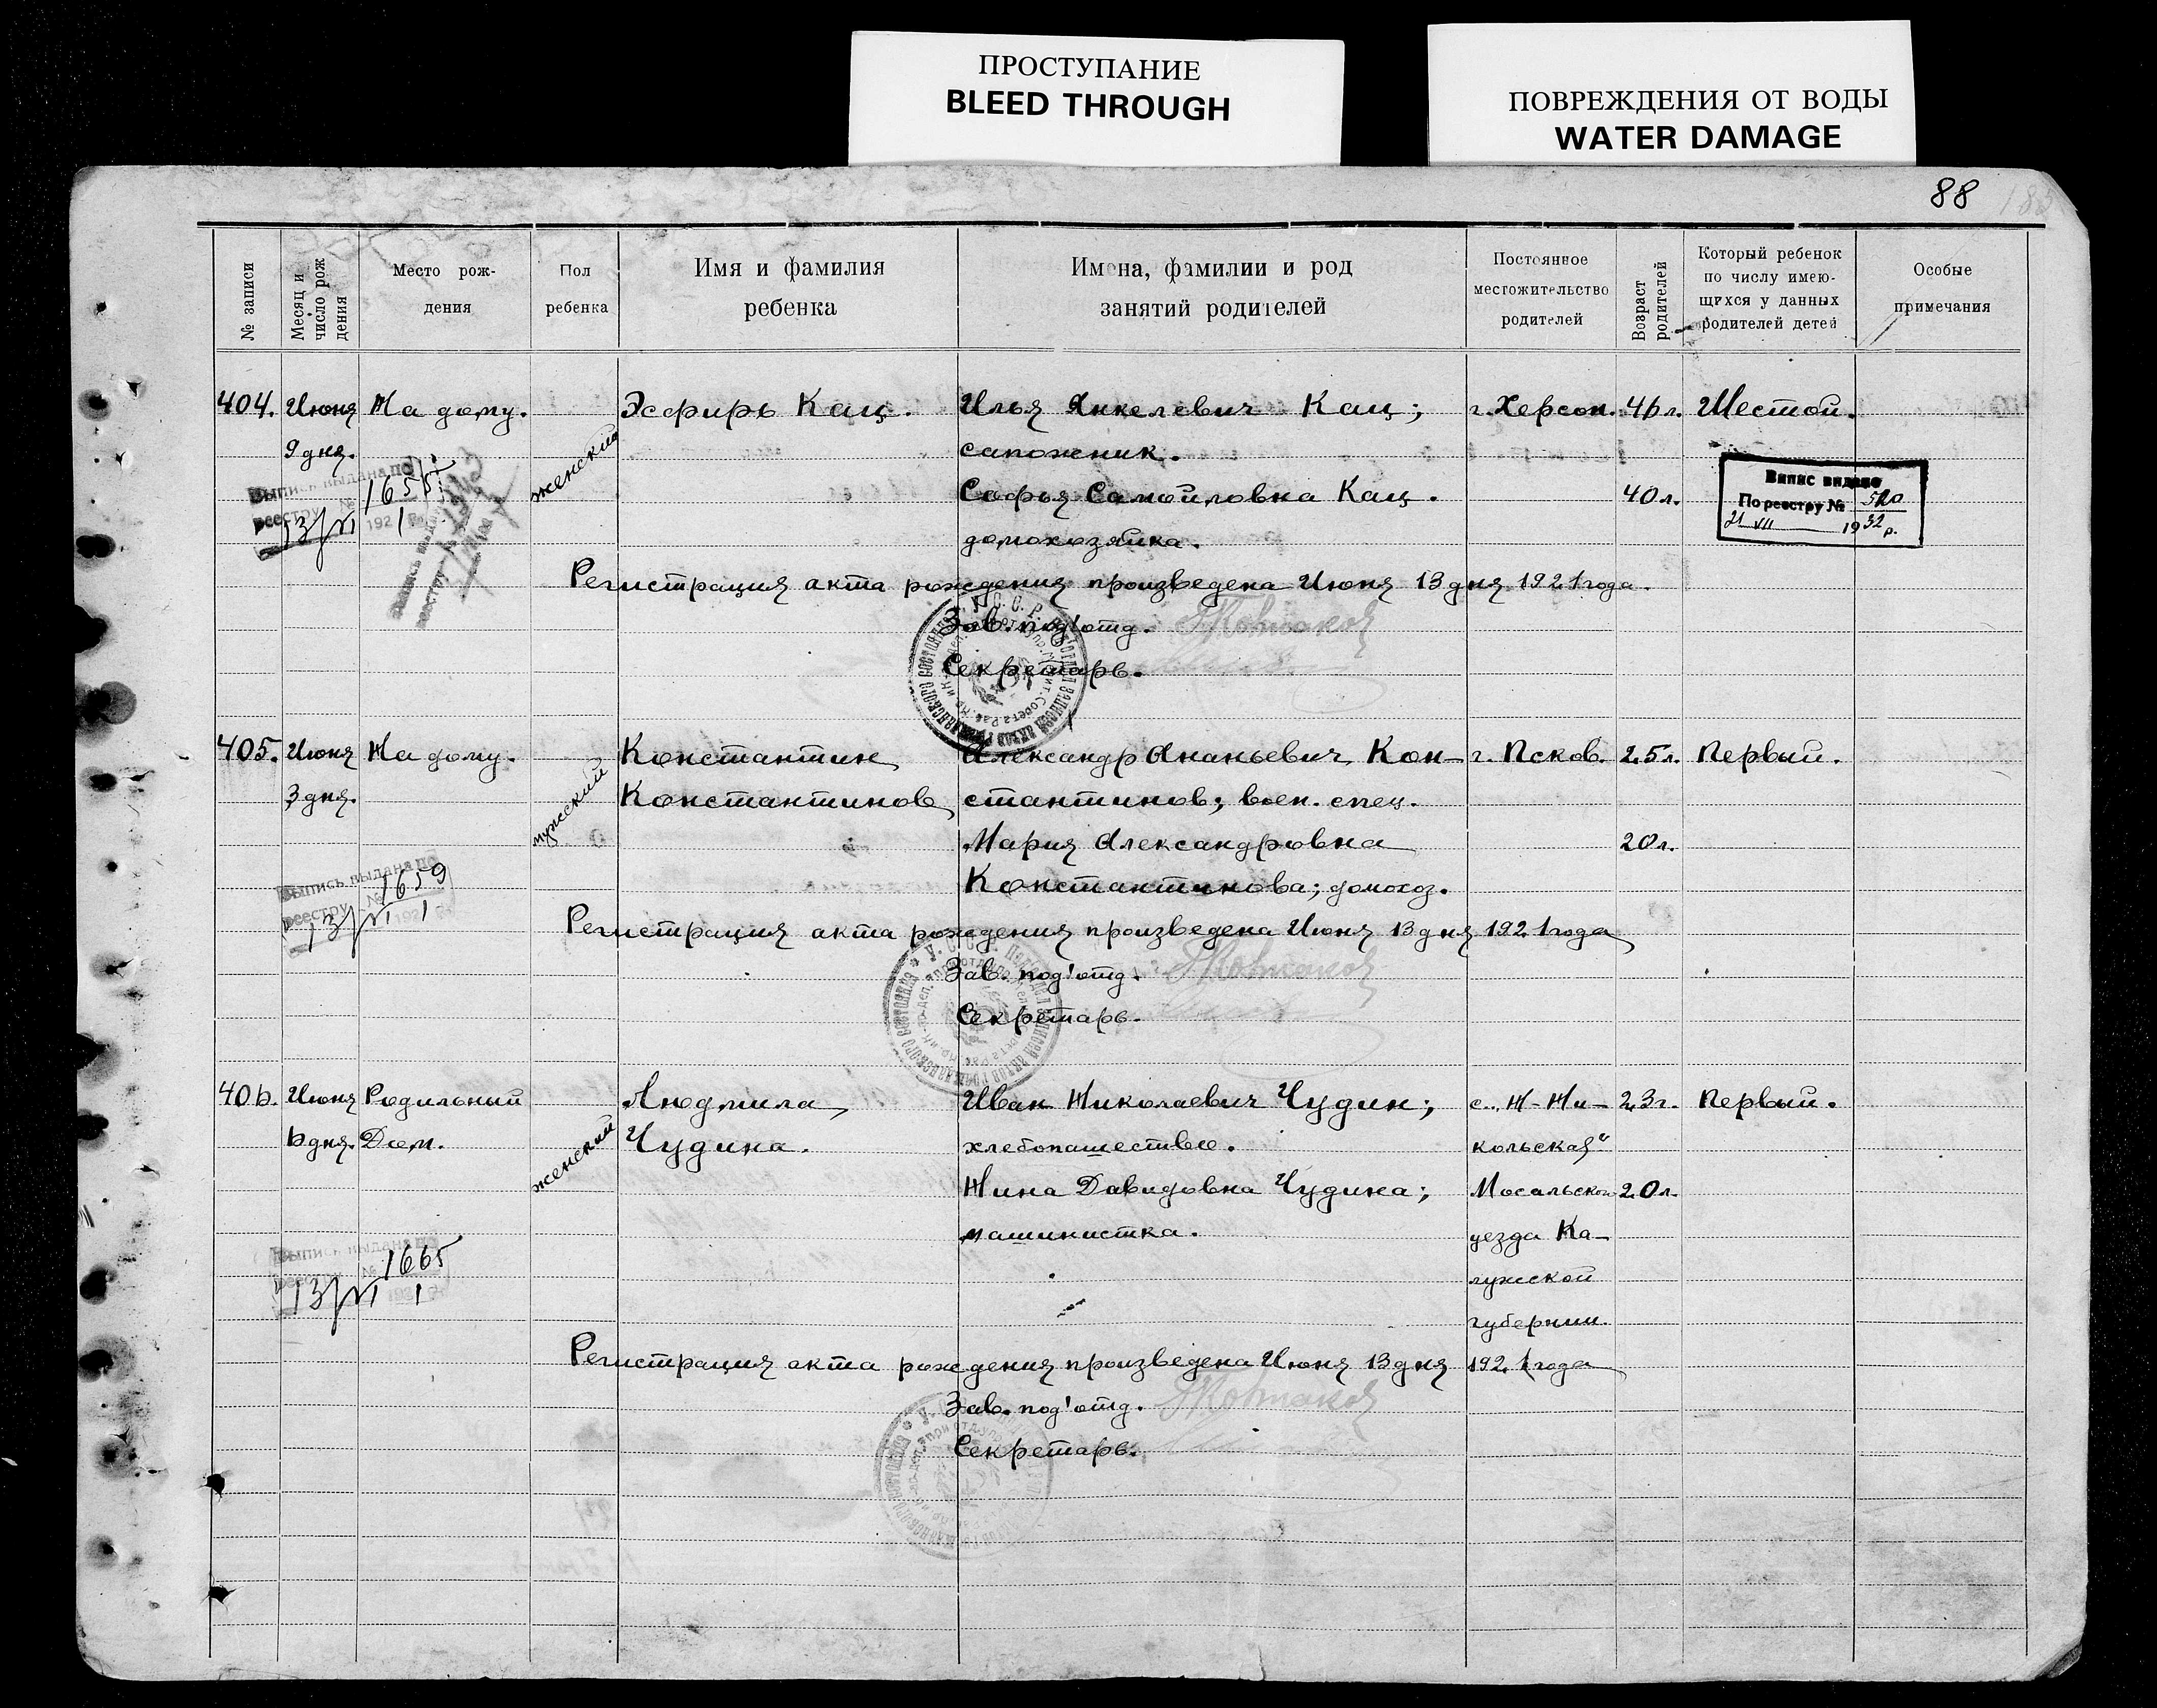 ПРОСТУПАНИЕ
BLEED THROUGH
ПОВРЕЖДЕНИЯ ОТ ВОДЫ
WATER DAMAGE
88
№ записи
Месяц и число рож дения
Место рож-
дения
Пол
ребенка
Имя и фамилия
ребенка
Имена, фамилии и род
занятий родителей
Постоянное
местожительство
родителей
Возраст родителей
Который ребенок
по числу имею-
щихся у данных
родителей детей
Особые
примечания
404. Июня На дому. женский Эсфирь Кац. Илья Янкелевич Кац; г. Херсон. 46 л. Шестой.
9 дня. сапожник.
Софья Самойловна Кац. 40 л.
домохозяйка.
Выпись выдана по
реестру № 1655
13/VI 1921
Випис видано
По реестру № 520
21 VII 1932 р.
Регистрация акта рождения произведена Июня 13 дня 1921 года.
Зав. под'отд.
Секретарь.
405. Июня На дому. мужской Константин Александр Ананьевич Кон- г. Псков. 25 л. Первый.
3 дня. Константинов стантинов; воен. спец.
Мария Александровна 20 л.
Константинова; домохоз.
Выпись выдана по
реестру № 1659
13/VI 1921
Регистрация акта рождения произведена Июня 13 дня 1921 года
Зав. под'отд.
Секретарь.
406. Июня Родильный женский Людмила Иван Николаевич Чудин; с. Н-Ни- 23 г. Первый.
6 дня. Дом. Чудина. хлебопашество. кольская"
Нина Давидовна Чудина; Мосальского 20 л.
машинистка. уезда Ка-
лужской
губернии.
Выпись выдана по
реестру № 1665
13/VI 1
Регистрация акта рождения произведена Июня 13 дня 1921 года
Зав. под'отд.
Секретарь.